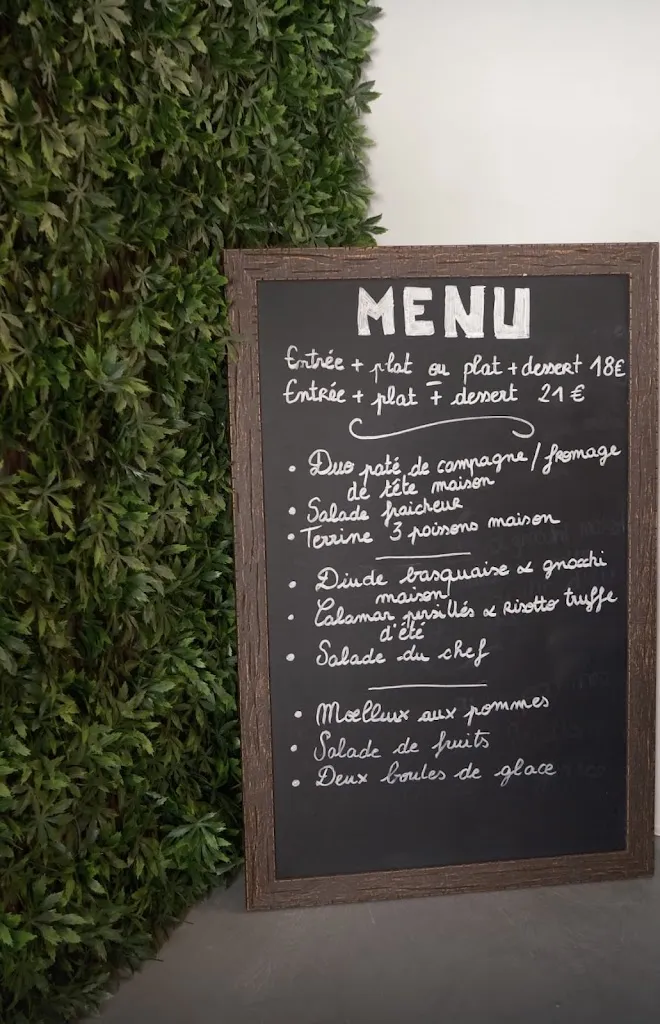 MENU
Entrée + plat ou plat + dessert 18€
Entrée + plat + dessert 21€
• Duo paté de campagne / fromage
de tête maison
• Salade fraicheur
• Terrine 3 poissons maison
• Dinde basquaise & gnocchi
maison
• Calamar persillés & Risotto truffe
d'été
• Salade du chef
• Moelleux aux pommes
• Salade de fruits
• Deux boules de glace